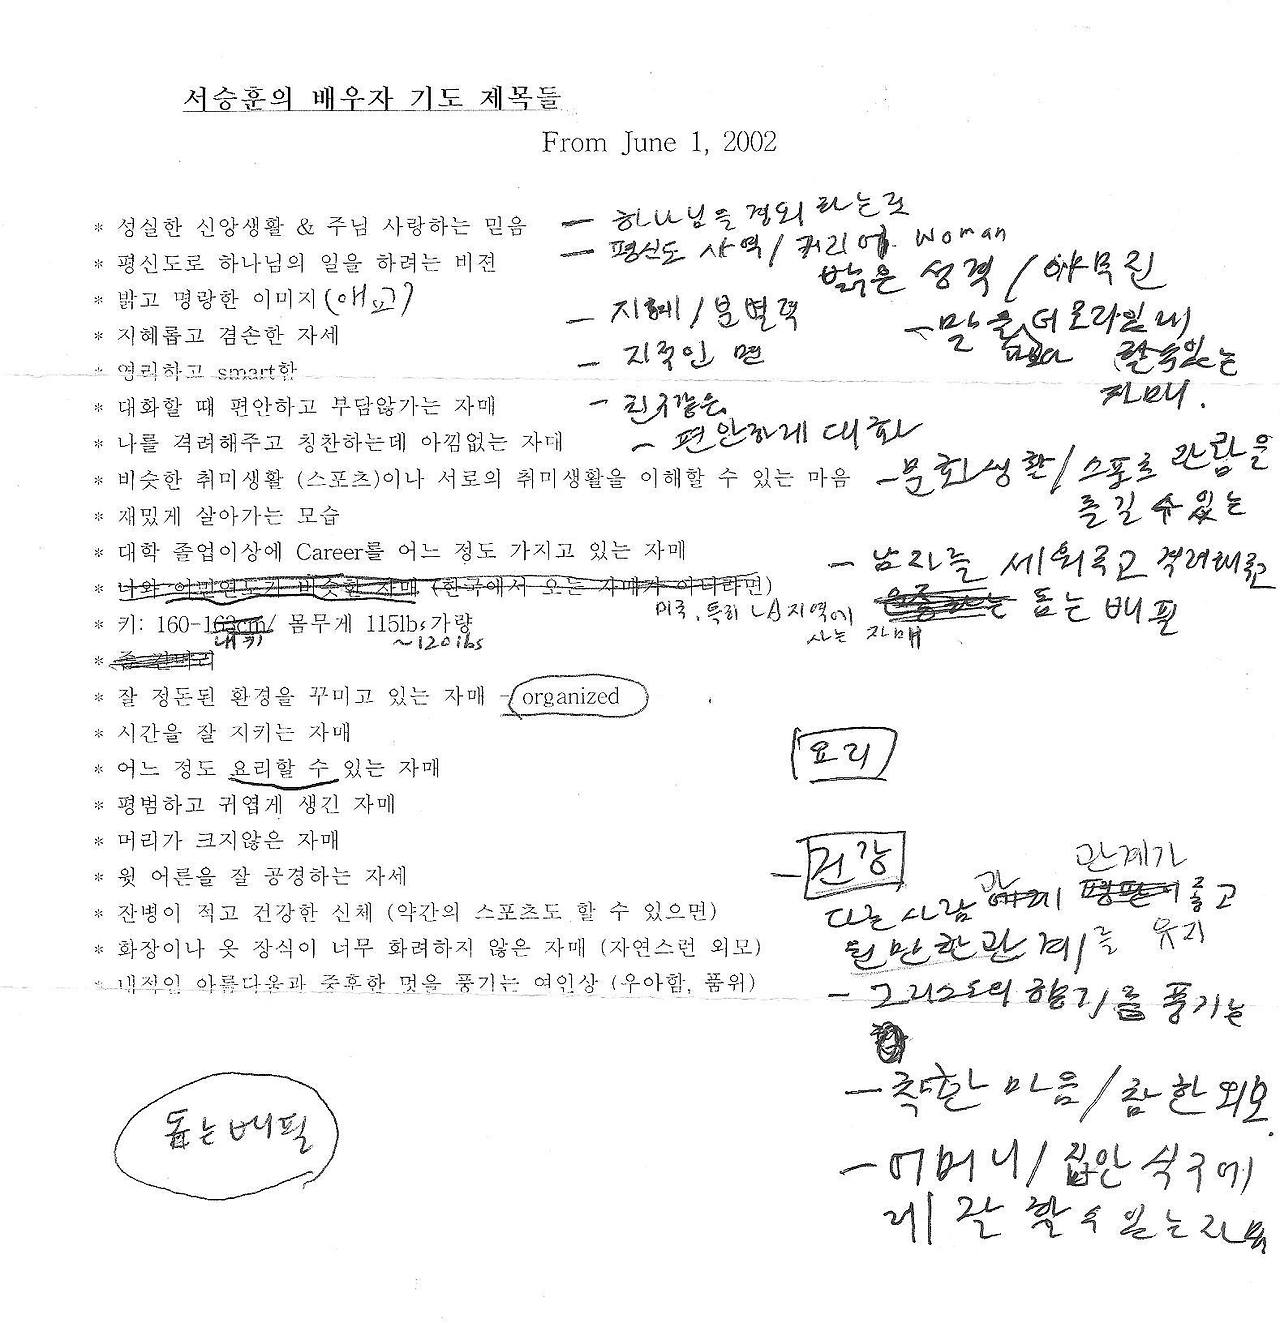 서승훈의 배우자 기도 제목들
From June 1, 2002
* 성실한 신앙생활 & 주님 사랑하는 믿음
* 평신도로 하나님의 일을 하려는 비젼
* 밝고 명랑한 이미지 (애교)
* 지혜롭고 겸손한 자세
* 영리하고 smart함
* 대화할 때 편안하고 부담않가는 자매
* 나를 격려해주고 칭찬하는데 아낌없는 자태
* 비슷한 취미생활 (스포츠)이나 서로의 취미생활을 이해할 수 있는 마음
* 재밌게 살아가는 모습
* 대학 졸업이상에 Career를 어느 정도 가지고 있는 자매
* 나와 이민연도가 비슷한 자매 (한국에서 오는 자매가 아니라면)
미국, 특히 LA지역에
사는 자매
* 키: 160-163cm/ 몸무게 115lbs가량
내 키
~120lbs
*
* 잘 정돈된 환경을 꾸미고 있는 자매 - organized
* 시간을 잘 지키는 자매
* 어느 정도 요리할 수 있는 자매
* 평범하고 귀엽게 생긴 자매
* 머리가 크지않은 자매
* 윗 어른을 잘 공경하는 자세
* 잔병이 적고 건강한 신체 (약간의 스포츠도 할 수 있으면)
* 화장이나 옷 장식이 너무 화려하지 않은 자매 (자연스런 외모)
* 내적인 아름다움과 중후한 멋을 풍기는 여인상 (우아함, 품위)
돕는 배필
- 하나님을 경외하는것
- 평신도 사역/커리어 woman
밝은 성격/야무진
- 지혜/분별력
- 말을
더 모라일내
할수있는
자매.
- 지적인 면
- 친구같은
- 편안하게 대화
- 문화생활/스포츠 관람을
즐길 수 있는
- 남자를 세워주고 격려해주고
돕는 배필
요리
- 건강
다른 사람 관계가 좋고
원만한 관계/를 유지
- 그리스도의 향기/를 풍기는
- 착한 마음/참한 외모.
- 어머니/집안 식구에
게 잘 할 수 있는 자매